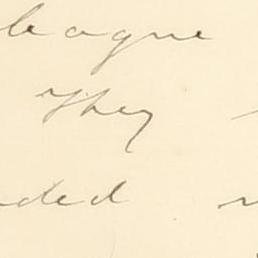 league
They
ded